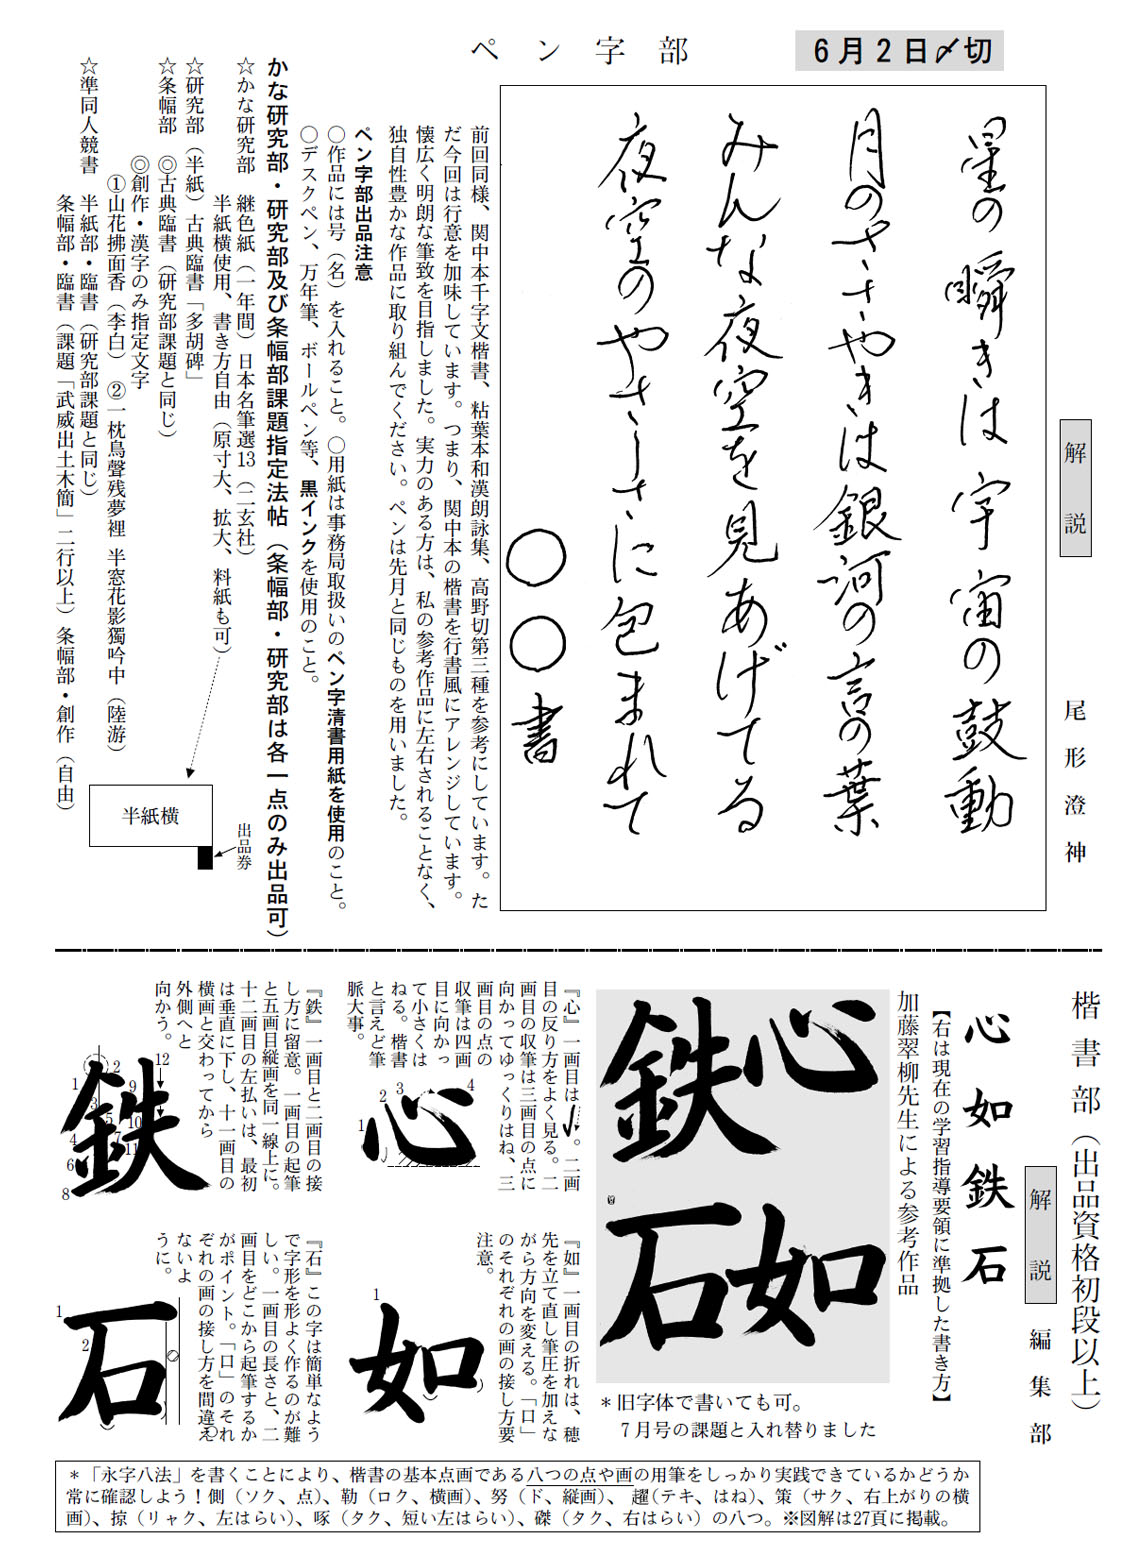 ペン字部
6月2日〆切
解説
尾形澄神
星の瞬きは宇宙の鼓動
月のささやきは銀河の言の葉
みんな夜空を見あげてる
夜空のやさしさに包まれて
〇〇書
前回同様、関中本千字文楷書、粘葉本和漢朗詠集、高野切第三種を参考にしています。た
だ今回は行意を加味しています。つまり、関中本の楷書を行書風にアレンジしています。
懐広く明朗な筆致を目指しました。実力のある方は、私の参考作品に左右されることなく、
独自性豊かな作品に取り組んでください。ペンは先月と同じものを用いました。
ペン字部出品注意
〇作品には号（名）を入れること。〇用紙は事務局取扱いのペン字清書用紙を使用のこと。
〇デスクペン、万年筆、ボールペン等、黒インクを使用のこと。
かな研究部・研究部及び条幅部課題指定法帖（条幅部・研究部は各一点のみ出品可）
☆かな研究部　継色紙（一年間）日本名筆選13（二玄社）
半紙横使用、書き方自由（原寸大、拡大、料紙も可）
☆研究部（半紙）古典臨書「多胡碑」
☆条幅部　◎古典臨書（研究部課題と同じ）
◎創作・漢字のみ指定文字
①山花拂面香（李白）　②一枕鳥聲残夢裡 半窓花影獨吟中（陸游）
☆準同人競書　半紙部・臨書（研究部課題と同じ）
条幅部・臨書（課題「武威出土木簡」二行以上）条幅部・創作（自由）
半紙横
出品券
楷書部（出品資格初段以上）
解説
編集部
心如鉄石
【右は現在の学習指導要領に準拠した書き方】
加藤翠柳先生による参考作品
心如
鉄石
＊旧字体で書いても可。
7月号の課題と入れ替りました
『心』一画目は　。二画
目の反り方をよく見る。二
画目の収筆は三画目の点に
向かってゆっくりはね、三
画目の点の
収筆は四画
目に向かっ
て小さくは
ねる。楷書
と言えど筆
脈大事。
1
2
3
4
心
『鉄』一画目と二画目の接
し方に留意。一画目の起筆
と五画目縦画を同一線上に。
十二画目の左払いは、最初
は垂直に下し、十一画目の
横画と交わってから
外側へと
向かう。
12
1
2
3
4
5
6
7
8
9
10
11
鉄
『如』一画目の折れは、穂
先を立て直し筆圧を加えな
がら方向を変える。「口」
のそれぞれの画の接し方要
注意。
1
如
『石』この字は簡単なよう
で字形を形よく作るのが難
しい。一画目の長さと、二
画目をどこから起筆するか
がポイント。「口」のそれ
ぞれの画の接し方を間違え
ないよ
うに。
1
2
石
＊「永字八法」を書くことにより、楷書の基本点画である八つの点や画の用筆をしっかり実践できているかどうか
常に確認しよう！側（ソク、点）、勒（ロク、横画）、努（ド、縦画）、趯（テキ、はね）、策（サク、右上がりの横
画）、掠（リャク、左はらい）、啄（タク、短い左はらい）、磔（タク、右はらい）の八つ。※図解は27頁に掲載。